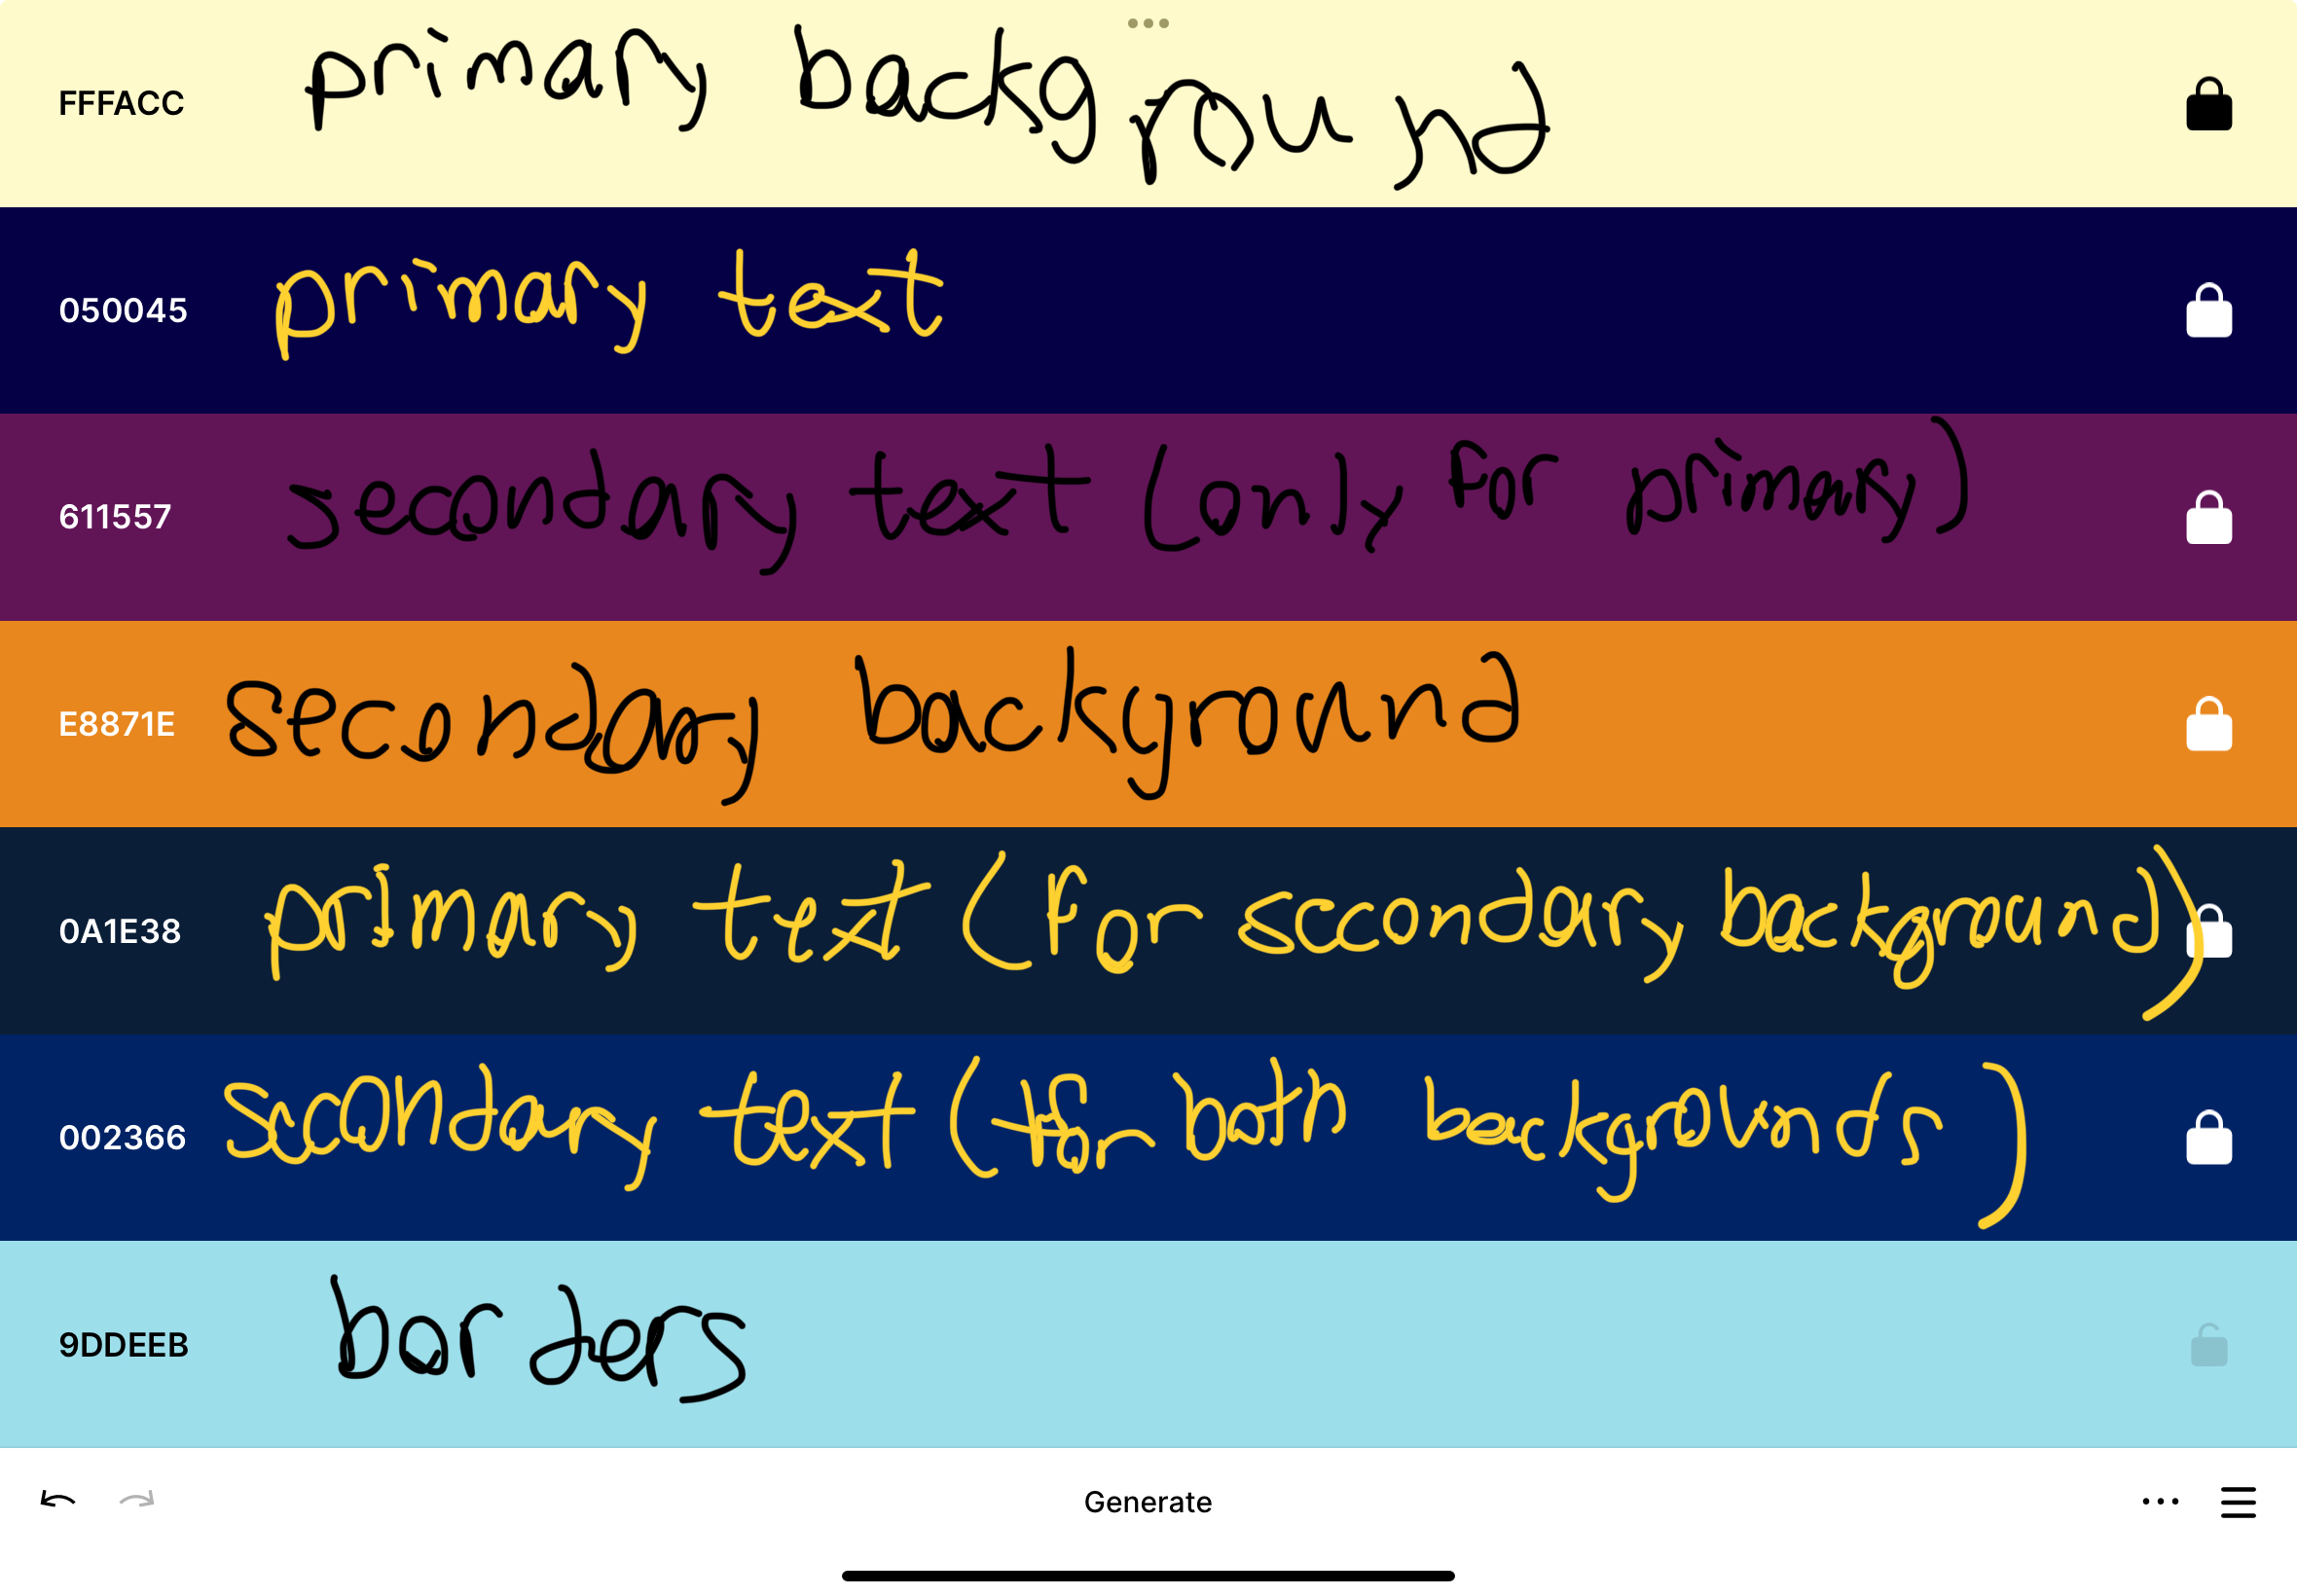 FFFACC primary background
050045 primary text
611557 secondary text (only for primary)
E8871E secondary background
0A1E38 primary text (for secondary background)
002366 scondary text (for both backgrounds)
9DDEEB borders
Generate